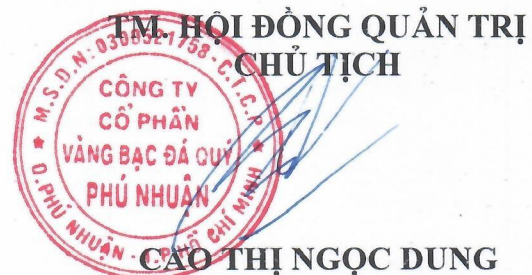 TM. HỘI ĐỒNG QUẢN TRỊ
CHỦ TỊCH
M.S.D.N: 0300521758 - C.T.C.P
CÔNG TY
CỔ PHẦN
VÀNG BẠC ĐÁ QUÝ
PHÚ NHUẬN
Q. PHÚ NHUẬN - T.P HỒ CHÍ MINH
CAO THỊ NGỌC DUNG